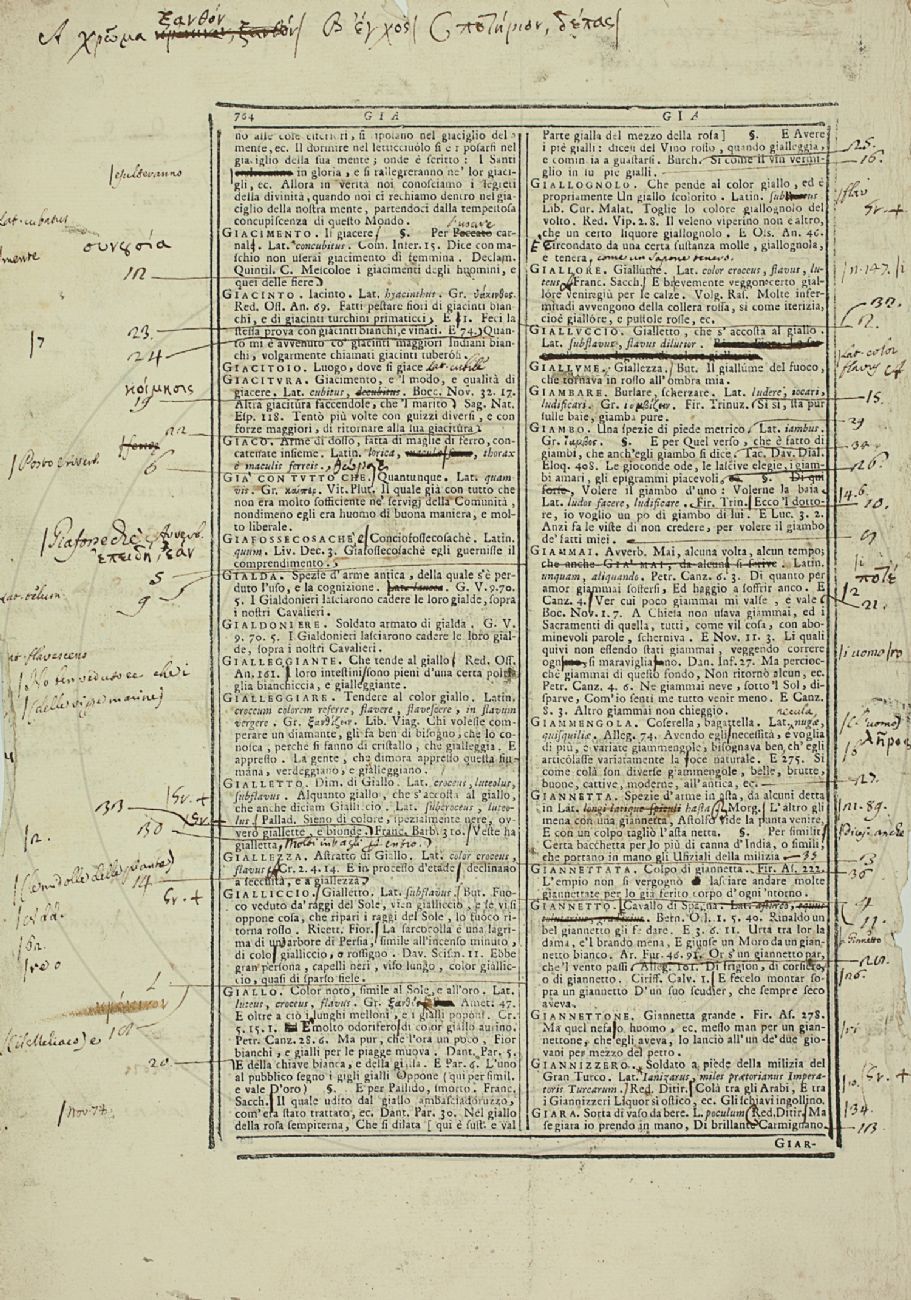 Α χρῶμα ξανθόν Β ἔγχος C ποτήριον, δέπας
764 GIA GIA
mente, ec. Il dormire nel letticciuolo si è riposarsi nel
giaciglio della sua mente; onde è scritto: I Santi
in gloria, e si rallegreranno ne' lor giaci-
gli, ec. Allora in verità noi conosciamo i segreti
della divinità, quando noi ci rechiamo dentro nel gia-
ciglio della nostra mente, partendoci dalla tempestosa
concupiscenza di questo Mondo.
GIACIMENTO. Il giacere. §. Per Peccato car-
nale. Lat. concubitus. Com. Inter. 15. Dice con ma-
schio non userai giacimento di femmina. Declam.
Quintil. C. Mescoloe i giacimenti degli huomini, e
quei delle fiere.
GIACINTO. Iacinto. Lat. hyacinthus. Gr. ὑάκινθος.
Red. Oss. An. 69. Fatti pestare fiori di giacinto bian-
chi, e di giacinti turchini primaticci. E 71. Feci la
stessa prova con giacinti bianchi, e vinati. E 74. Quan-
to mi è avvenuto co' giacinti maggiori Indiani bian-
chi, volgarmente chiamati giacinti tuberosi.
GIACITOIO. Luogo, dove si giace. Lat. cubile
GIACITURA. Giacimento, e 'l modo, e qualità di
giacere. Lat. cubitus, decubitus. Bocc. Nov. 32. 17.
Altra giacitura faccendole, che 'l marito. Sag. Nat.
Esp. 118. Tentò più volte con guizzi diversi, e con
forze maggiori, di ritornare alla sua giacitura.
GIACO. Arme di dosso, fatta di maglie di ferro, con-
catenate insieme. Latin. lorica, thorax
e maculis ferreis.
GIA' CON TUTTO CHE. Quantunque. Lat. quam-
vis. Gr. καίπερ. Vit. Plut. Il quale già con tutto che
non era molto sofficiente ne' servigj della Comunità,
nondimeno egli era huomo di buona maniera, e mol-
to liberale.
GIAFOSSECOSACHÈ, e Conciofossecosachè. Latin.
quum. Liv. Dec. 3. Giafossecosachè egli guernisse il
comprendimento.
GIALDA. Spezie d'arme antica, della quale s'è per-
duto l'uso, e la cognizione. G. V. 9. 70.
5. I Gialdonieri lasciarono cadere le loro gialde, sopra
i nostri Cavalieri.
GIALDONIERE. Soldato armato di gialda. G. V.
9. 70. 5. I Gialdonieri lasciarono cadere le loro gial-
de, sopra i nostri Cavalieri.
GIALLEGGIANTE. Che tende al giallo. Red. Oss.
An. 161. I loro intestini sono pieni d'una certa poltiglia
glia bianchiccia, e gialleggiante.
GIALLEGGIARE. Tendere al color giallo. Latin.
croceum colorem referre, flavere, flavescere, in flavum
vergere. Gr. ξανθίζειν. Lib. Viag. Chi volesse com-
perare un diamante, gli fa ben di bisogno, che lo co-
nosca, perchè si fanno di cristallo, che gialleggia. E
appresso. La gente, che dimora appresso questa fiu-
mana, verdeggiano, e gialleggiano.
GIALLETTO. Dim. di Giallo. Lat. croceus, luteolus,
subflavus. Alquanto giallo, che s'accosta al giallo,
che anche diciam Gialliccio. Lat. subcroceus, luteo-
lus. Pallad. Sieno di colore, spezialmente nere, ov-
vero giallette, e bionde. Franc. Barb. 310. Veste ha
gialletta,
GIALLEZZA. Astratto di Giallo. Lat. color croceus,
flavus. Cr. 2. 4. 14. E in processo d'etade, declinano
a seccità, e a giallezza.
GIALLICCIO. Gialletto. Lat. subflavus. But. Fuo-
co veduto da' raggi del Sole, vien gialliccio, e se vi si
oppone cosa, che ripari i raggi del Sole, lo fuoco ri-
torna rosso. Ricett. Fior. La sarcocolla è una lagri-
ma di un'arbore di Persia, simile all'incenso minuto,
di color gialliccio, o rossigno. Dav. Scism. 11. Ebbe
gran persona, capelli neri, viso lungo, color giallic-
cio, quasi di sparso fiele.
GIALLO. Color noto, simile al Sole, e all'oro. Lat.
luteus, croceus, flavus. Gr. ξανθός. Amet. 47.
E oltre a ciò i lunghi melloni, e i gialli poponi. Cr.
5. 15. 1. E molto odoriferi di color giallo aurino.
Petr. Canz. 28. 6. Ma pur, che l'ora un poco, Fior
bianchi, e gialli per le piagge muova. Dant. Par. 5.
E della chiave bianca, e della gialla. E Par. 6. L'uno
al pubblico segno i gigli gialli Oppone (qui per simil.
e vale D'oro) §. E per Pallido, smorto. Franc.
Sacch. Il quale udito dal giallo ambasciadoruzzo,
com'era stato trattato, ec. Dant. Par. 30. Nel giallo
della rosa sempiterna, Che si dilata [qui è sust. e val
Parte gialla del mezzo della rosa] §. E Avere
i piè gialli: dicesi del Vino rosso, quando gialleggia,
e comincia a guastarsi. Burch. Si come il vin vermi-
glio in su piè gialli.
GIALLOGNOLO. Che pende al color giallo, ed è
propriamente Un giallo scolorito. Latin.
Lib. Cur. Malat. Toglie lo colore giallognolo del
volto. Red. Vip. 28. Il veleno viperino non è altro,
che un certo liquore giallognolo. E Oss. An. 46.
Circondato da una certa sustanza molle, giallognola,
e tenera, come un sapone tenero.
GIALLORE. Giallume. Lat. color croceus, flavus, lu-
teus. Franc. Sacch. E brevemente veggon certo gial-
lore venir giù per le calze. Volg. Ras. Molte infer-
mitadi avvengono della collera rossa, sì come iterizia,
cioè giallore, e pustole rosse, ec.
GIALLUCCIO. Gialletto, che s'accosta al giallo.
Lat. subflavus, flavus dilutior.
GIALLUME. Giallezza. But. Il giallume del fuoco,
che tornava in rosso all'ombra mia.
GIAMBARE. Burlare, scherzare. Lat. ludere, iocari,
ludificari. Gr. ἰαμβίζειν. Fir. Trinuz. Sì sì, sta pur
sulle baie, giamba pure.
GIAMBO. Una spezie di piede metrico. Lat. iambus.
Gr. ἴαμβος. §. E per Quel verso, che è fatto di
giambi, che anch'egli giambo si dice. Tac. Dav. Dial.
Eloq. 408. Le gioconde ode, le lascive elegie, i giam-
bi amari, gli epigrammi piacevoli, §.
Volere il giambo d'uno: Volerne la baia.
Lat. ludos facere, ludificare. Fir. Trin. Ecco 'l dotto-
re, io voglio un po di giambo di lui. E Luc. 3. 2.
Anzi fa le viste di non credere, per volere il giambo
de' fatti miei.
GIAMMAI. Avverb. Mai, alcuna volta, alcun tempo;
che anche GIA' MAI, da alcuni si scrive. Latin.
unquam, aliquando. Petr. Canz. 6. 3. Di quanto per
amor giammai soffersi, Ed haggio a soffrir anco. E
Canz. 4. Ver cui poco giammai mi valse, e vale
Boc. Nov. 1. 7. A chiesa non usava giammai, ed i
Sacramenti di quella, tutti, come vil cosa, con abo-
minevoli parole, scherniva. E Nov. 11. 3. Li quali
quivi non essendo stati giammai, veggendo correre
si maraviglia Dan. Inf. 27. Ma percioc-
chè giammai di questo fondo, Non ritornò alcun, ec.
Petr. Canz. 4. 6. Ne giammai neve, sotto 'l Sol, di-
sparve, Com'io senti me tutto venir meno. E Canz.
8. 3. Altro giammai non chieggio.
GIAMMENGOLA. Coserella, bagattella. Lat. nugæ,
quisquiliæ. Alleg. 74. Avendo egli necessità, e voglia
di più, e variate giammengole, bisognava ben, ch'egli
articolasse variatamente la voce naturale. E 275. Sì
come colà son diverse giammengole, belle, brutte,
buone, cattive, moderne, all'antica, ec.
GIANNETTA. Spezie d'arme in asta, da alcuni detta
in Lat. hasta. Morg. L'altro gli
mena con una giannetta, Astolfo vide la punta venire,
E con un colpo tagliò l'asta netta. §. Per similit.
Certa bacchetta per lo più di canna d'India, o simili,
che portano in mano gli Ufiziali della milizia. 35
GIANNETTATA. Colpo di giannetta. Fir. As. 222.
L'empio non si vergognò lasciare andare molte
giannettate per lo già ferito corpo d'ogn'intorno.
GIANNETTO. Cavallo di Spagna.
Bern. Orl. 1. 5. 40. Rinaldo un
bel giannetto gli fe dare. E 3. 6. 11. Urta tra lor la
dama, e'l brando mena, E giunse un Moro da un gian-
netto bianco. Ar. Fur. 46. 91. Or s'un giannetto par,
che'l vento passi. Alleg. 101. Di frigion, di corsiero,
o di giannetto. Ciriff. Calv. 1. E fecelo montar so-
pra un giannetto D'un suo scudier, che sempre seco
aveva.
GIANNETTONE. Giannetta grande. Fir. As. 278.
Ma quel nefario huomo, ec. messo man per un gian-
nettone, ch'egli aveva, lo lanciò all'un de' due gio-
vani per mezzo del petto.
GIANNIZZERO. Soldato a piède della milizia del
Gran Turco. Lat. Ianizarus, miles prætorianus Impera-
toris Turcarum. Red. Ditir. Colà tra gli Arabi, E tra
i Giannizzeri Liquor sì ostico, ec. Gli schiavi ingollino.
GIARA. Sorta di vaso da bere. L. poculum. Red. Ditir. Ma
se giara io prendo in mano, Di brillante Carmignano.
GIAR-
συνεσία
112
23
24
κοίμησις
19
6
5
9
313
130
14
20
25
16
32
15
26
10
ποτέ
21
27
13
36
11
134
113